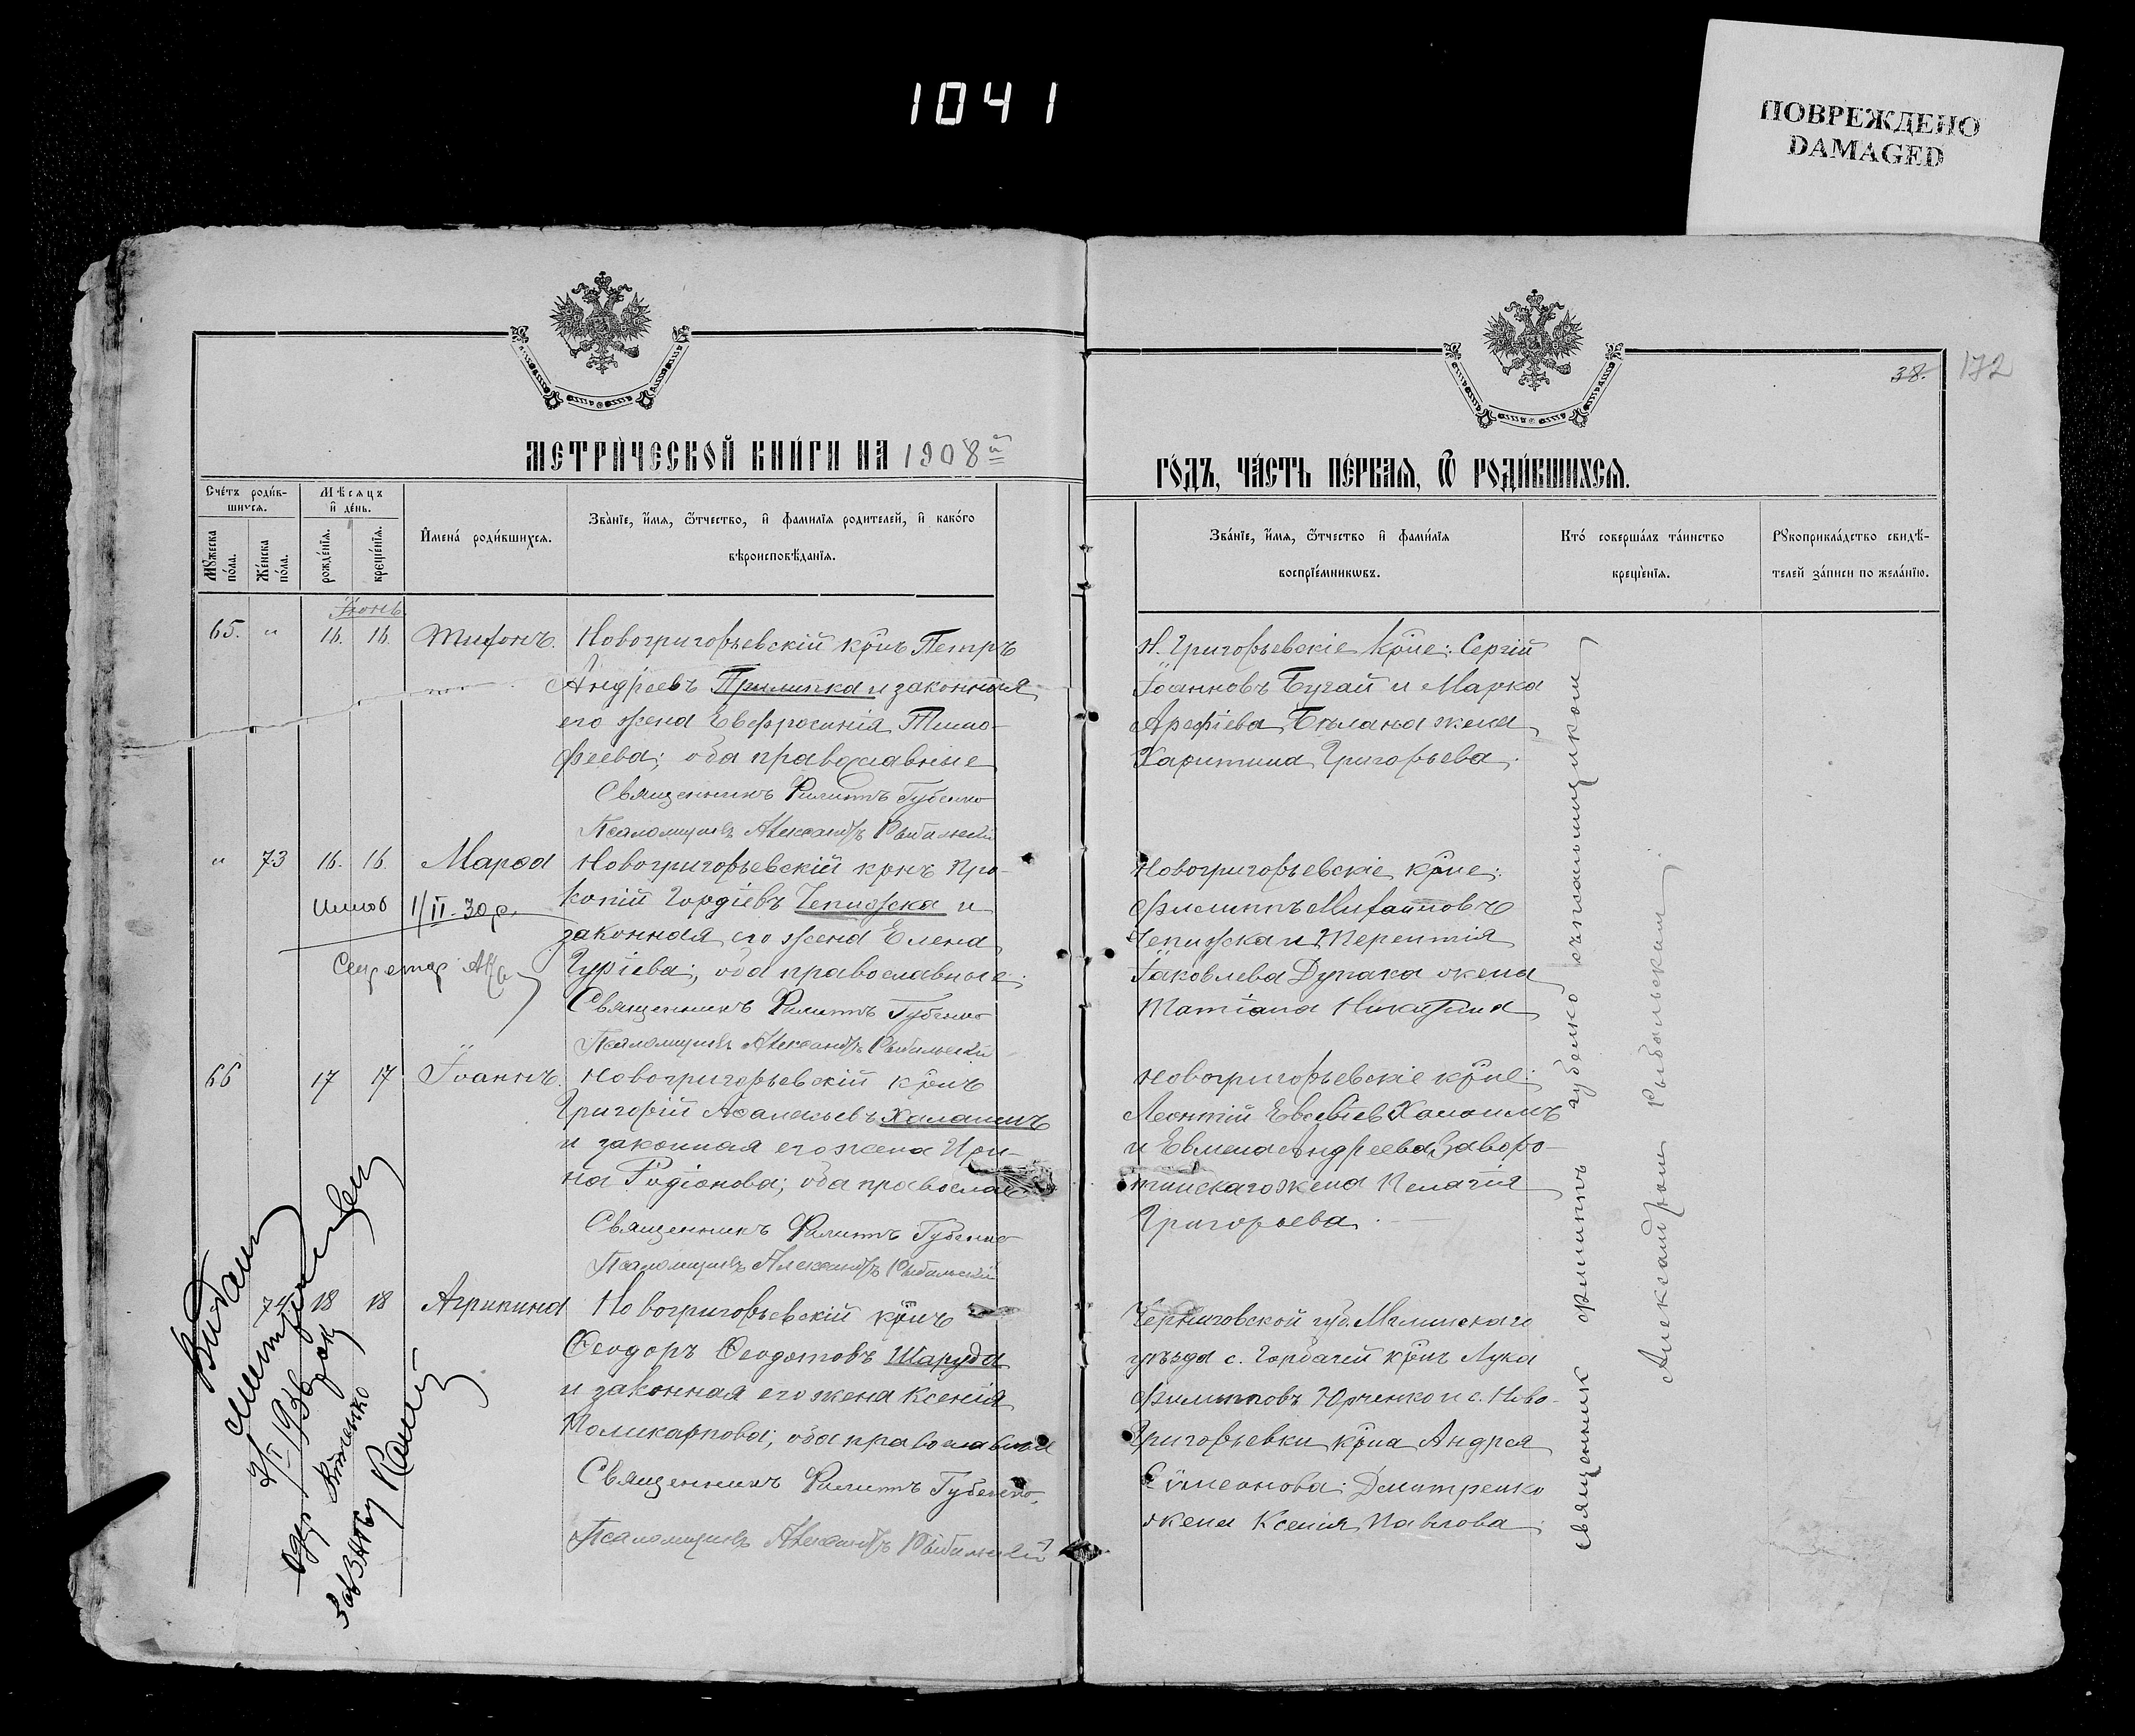 1041
ПОВРЕЖДЕНО
DAMAGED
38.
172
МЕТРИ́ЧЕСКОЙ КНИ́ГИ НА 1908й
ГО́ДЪ, ЧА́СТЬ ПЕ́РВАЯ, Ѿ РОДИ́ВШИХСЯ.
Сче́тъ роди́в-
шихся.
Мѣ́сяцъ
и де́нь.
Мꙋ́жеска
по́ла.
Же́нска
по́ла.
рожде́нїя.
креще́нїя.
Имена́ роди́вшихся.
Зва́нїе, и́мя, ѻ́тчество, и фами́лїя родителей, и како́го
вѣроисповѣ́данїя.
Зва́нїе, и́мя, ѻ́тчество и фами́лїя
воспрїе́мниковъ.
Кто́ соверша́лъ та́инство
креще́нїя.
Рꙋкоприкла́дство свидѣ́-
телей за́писи по жела́нїю.
Іюнь
65. " 16. 16. Тихонъ. Новогригорьевскій крнъ Петръ
Андреевъ Прилипка и законная
его жена Евфросинія Тимо-
феева; оба православные
Священникъ Филиппъ Губенко
Псаломщикъ Александръ Рыбальскій
Н. Григорьевскіе крне: Сергій
Іоанновъ Бугай и Марка
Арефіева жена
Харитина Григорьева.
" 73 16. 16. Марѳа Новогригорьевскій крнъ Про-
копій Гордіевъ Чепижска и
законная его жена Елена
Гуріева; оба православные.
Священникъ Филиппъ Губенко
Псаломщикъ Александръ Рыбальскій
1/II-30 р.
Секретар
Новогригорьевскіе крне:
Филиппъ
Чепижска и Терентія
Іаковлева Дупака жена
Татіана Никитина
66 17 17 Іоаннъ. Новогригорьевскій крнъ
Григорій Аѳанасьевъ Халаимъ
и законная его жена Ири-
на Родіонова; оба православ
Священникъ Филиппъ Губенко
Псаломщикъ Александръ Рыбальскій
Новогригорьевскіе крне:
Леонтій Евсевіев Халаимъ
и Евмена Андреева Заворо-
тинскаго жена Пелагія
Григорьева.
74 18 18 Агрипина Новогригорьевскій крнъ
Ѳеодоръ Ѳеодотовъ Шаруда
и законная его жена Ксенія
Поликарпова; оба православные
Священникъ Филиппъ Губенко.
Псаломщикъ Александръ Рыбальскій
Черниговской губ. Мглинскаго
уѣзда с. крнъ Лука
Филипповъ Юрченко и с. Ново-
Григорьевки крна Андрея
Сѵмеонова Дмитренко
жена Ксенія Павлова.
Священник Филиппъ Губенко съ псаломщиком
Александром Рыбальским.
Видано
1936 року
Зав ЗАГСу